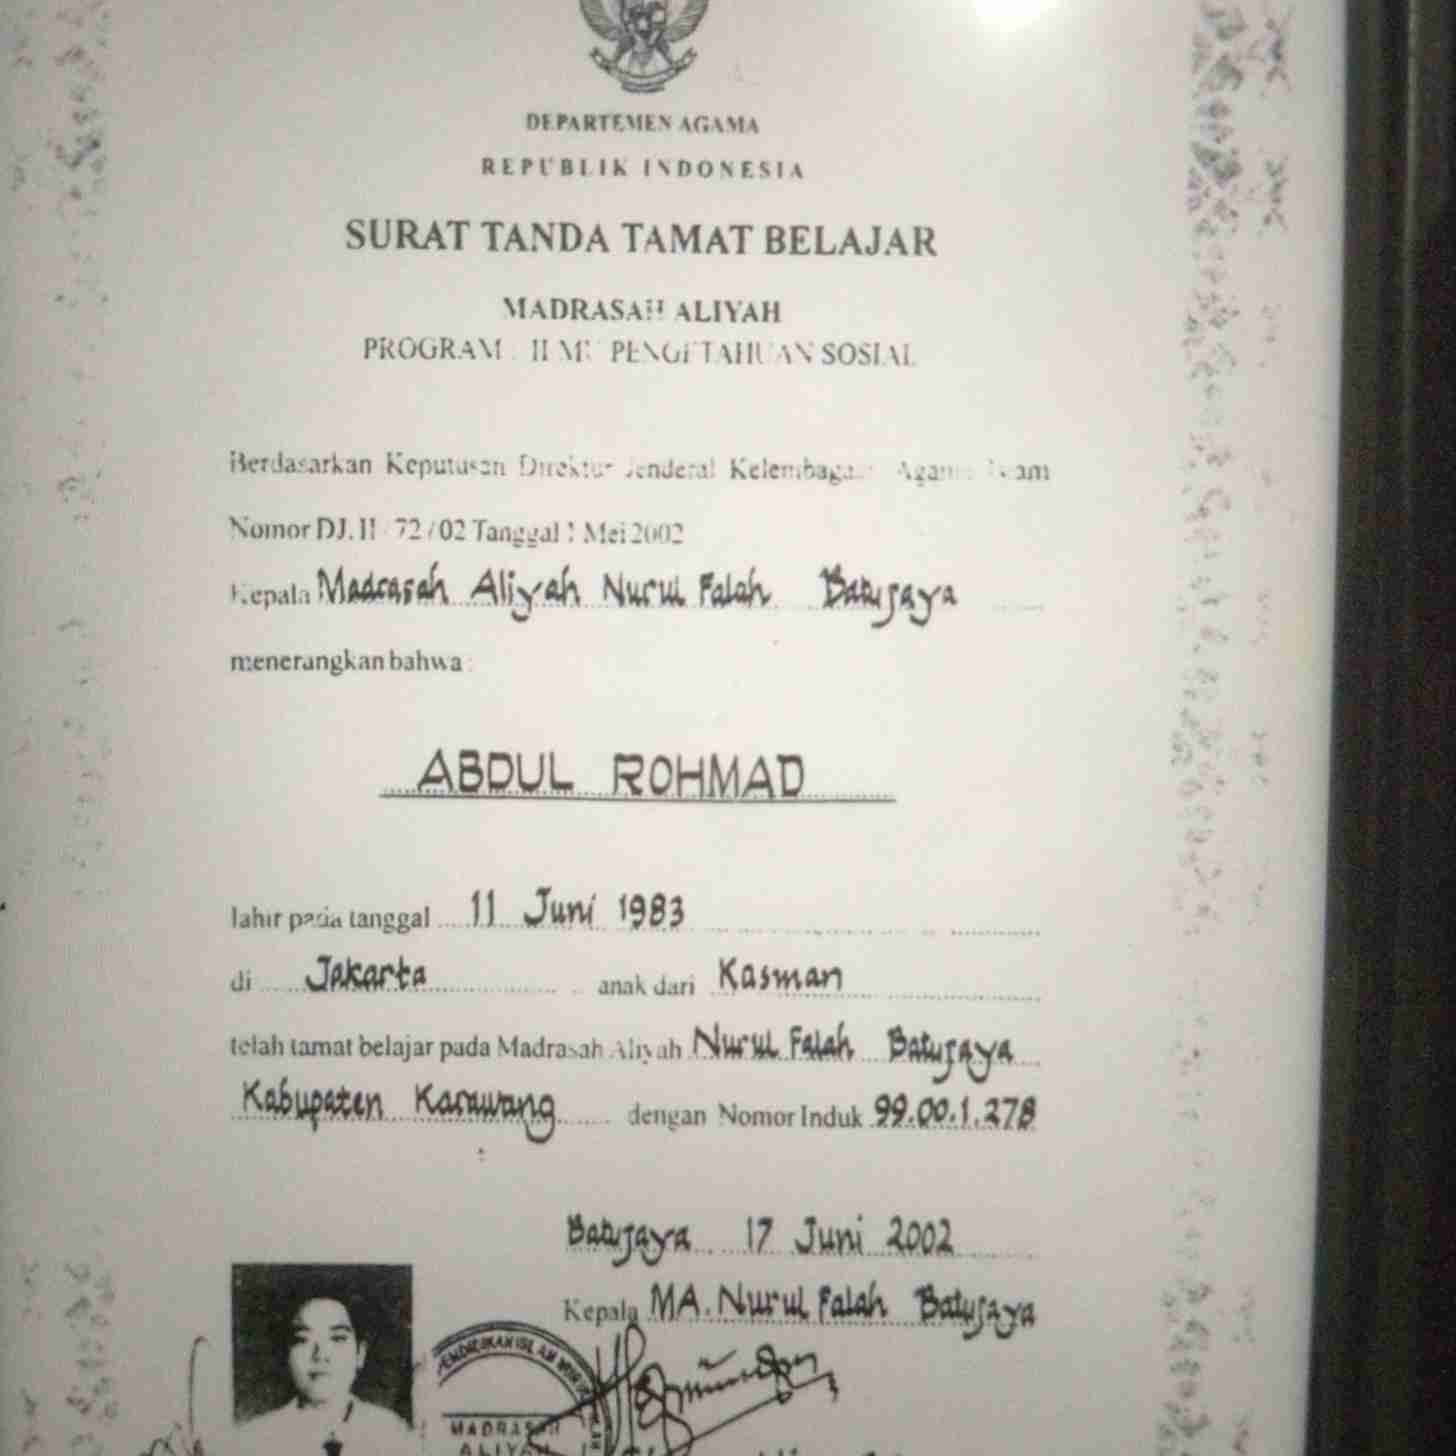 DEPARTEMEN AGAMA
REPUBLIK INDONESIA
SURAT TANDA TAMAT BELAJAR
MADRASAH ALIYAH
PROGRAM : ILMU PENGETAHUAN SOSIAL
Berdasarkan Keputusan Direktur Jenderal Kelembagaan Agama Islam
Nomor DJ. II / 72 / 02 Tanggal Mei 2002
Kepala Madrasah Aliyah Nurul Falah Batujaya
menerangkan bahwa :
ABDUL ROHMAD
lahir pada tanggal 11 Juni 1983
di Jakarta anak dari Kasman
telah tamat belajar pada Madrasah Aliyah Nurul Falah Batujaya
Kabupaten Karawang dengan Nomor Induk 99.00.1.278
Batujaya 17 Juni 2002
Kepala MA. Nurul Falah Batujaya
PENDIDIKAN ISLAM
MADRASAH
ALIYAH